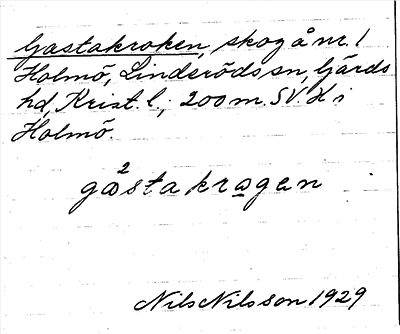 Gastakroken, skog å nr. 1
Holmö, Linderöds sn, Gärds
hd, Krist. l.; 200 m. SV. H i
Holmö.
2
gɷsta kragan
Nils Nilsson 1929